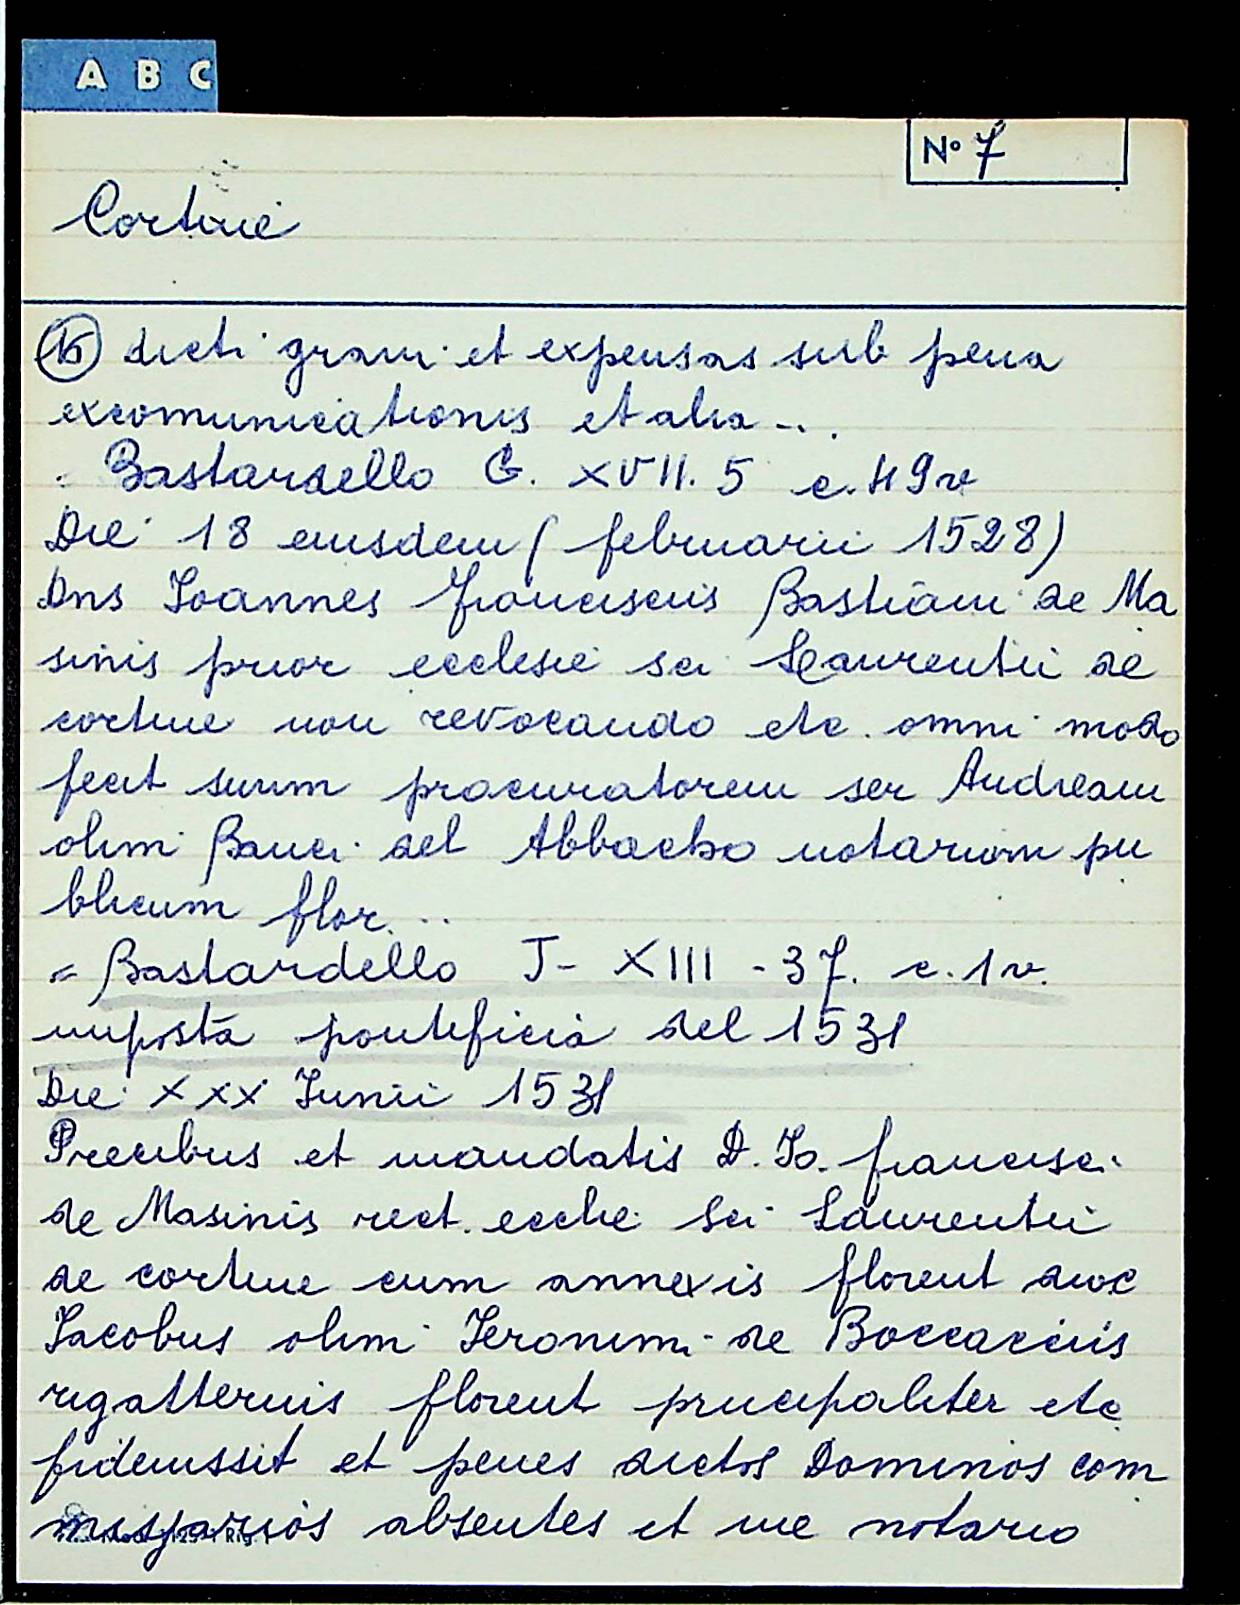 A B C
N° 7
Cortine
16 dicti grani et expensas sub pena
excomunicationis et alia...
= Bastardello G. XVII. 5 c. 49v
Die 18 eiusdem (februarii 1528)
Dns Ioannes Franciscus Bastiani de Ma
sinis prior ecclesie sci Laurentii de
cortine non revocando etc. omni modo
fecit suum procuratorem ser Andream
olim Banci del Abbacho notarium pu
blicum flor...
= Bastardello J - XIII - 37. c. 1v.
imposta pontificia del 1531
Die XXX Iunii 1531
Precibus et mandatis D. Io. francisci
de Masinis rect. eccle sci Laurentii
de cortine cum annexis florent dioc
Iacobus olim Ieronimi de Boccacciis
rigatterius florent principaliter etc
fideiussit et penes dictos Dominos com
missarios absentes et me notario